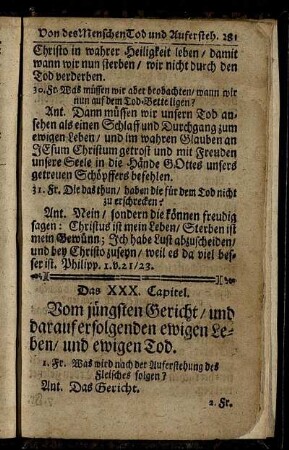 Von des Menschen Tod und Aufersteh. 281
Christo in wahrer Heiligkeit leben / damit
wann wir nun sterben / wir nicht durch den
Tod verderben.
30. Fr. Was müssen wir aber beobachten / wann wir
nun auf dem Tod-Bette ligen?
Ant. Dann müssen wir unsern Tod an-
sehen als einen Schlaff und Durchgang zum
ewigen Leben / und im wahren Glauben an
JEsum Christum getrost und mit Freuden
unsere Seele in die Hände GOttes unsers
getreuen Schöpffers befehlen.
31. Fr. Die das thun / haben die für dem Tod nicht
zu erschrecken?
Ant. Nein / sondern die können freudig
sagen: Christus ist mein Leben / Sterben ist
mein Gewinn; Ich habe Lust abzuscheiden /
und bey Christo zuseyn / weil es da viel bes-
ser ist. Philipp. 1. v. 21/23.
Das XXX. Capitel.
Vom jüngsten Gericht / und
darauf erfolgenden ewigen Le-
ben / und ewigen Tod.
1. Fr. Was wird nach der Auferstehung des
Fleisches folgen?
Ant. Das Gericht.
2. Fr.